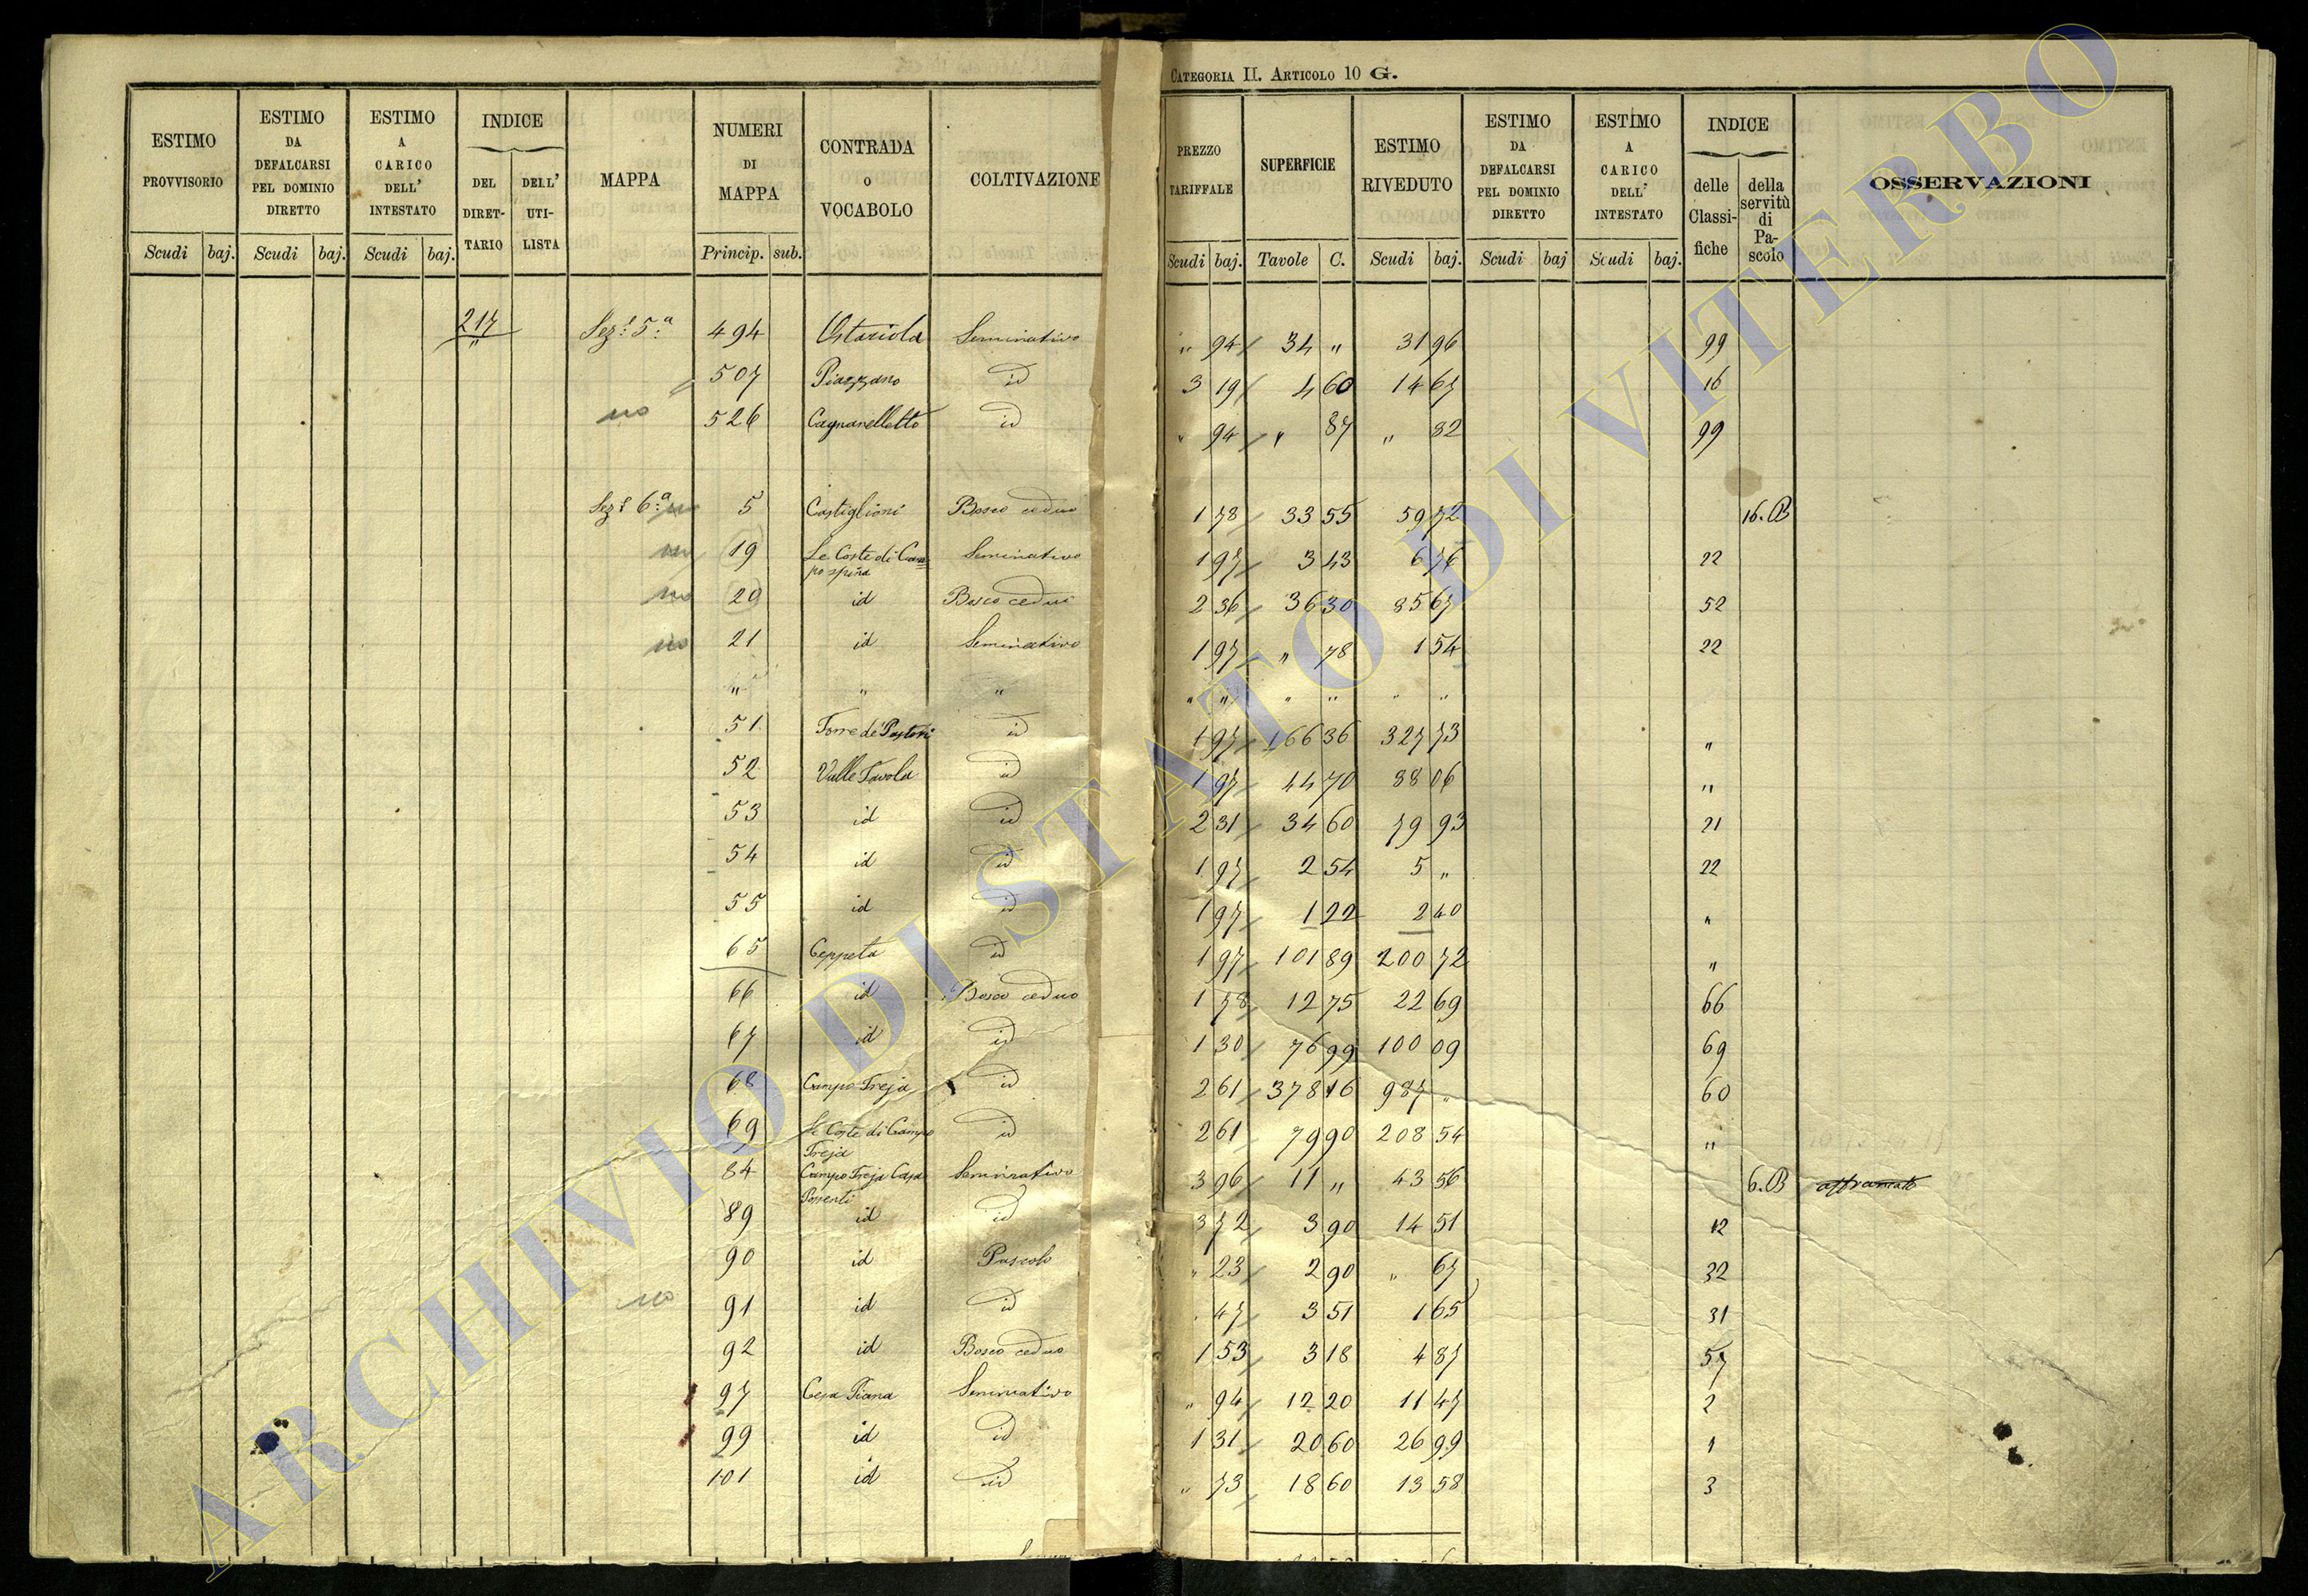 CATEGORIA II. ARTICOLO 10 G.
ESTIMO PROVVISORIO Scudi baj.
ESTIMO DA DEFALCARSI PEL DOMINIO DIRETTO Scudi baj.
ESTIMO A CARICO DELL' INTESTATO Scudi baj.
INDICE DEL DIRETTARIO DELL' UTILISTA
MAPPA
NUMERI DI MAPPA Princip. sub.
CONTRADA o VOCABOLO
COLTIVAZIONE
PREZZO TARIFFALE Scudi baj.
SUPERFICIE Tavole C.
ESTIMO RIVEDUTO Scudi baj.
ESTIMO DA DEFALCARSI PEL DOMINIO DIRETTO Scudi baj
ESTIMO A CARICO DELL' INTESTATO Scudi baj.
INDICE delle Classifiche della servitù di Pascolo
OSSERVAZIONI
217 Sez.e 5.a 494 Seminativo " 94 34 " 31 96 99
507 Piazzano id 3 19 4 60 14 67 16
no 526 Cagnanelletto id " 94 " 87 " 82 99
Sez.e 6.a no 5 Castiglioni Bosco ceduo 1 78 33 55 59 72 16. B
no 19 Le Coste di Campospina Seminativo 1 97 3 43 6 76 22
no 20 id Bosco ceduo 2 36 36 30 85 67 52
no 21 id Seminativo 1 97 " 78 1 54 22
" " " " " " " " "
51 Torre de' Pastori id 1 97 166 36 327 73 "
52 Valle Tavola id 1 97 44 70 88 06 "
53 id id 2 31 34 60 79 93 21
54 id id 1 97 2 54 5 " 22
55 id id 1 97 1 22 2 40 "
65 Ceppeta id 1 97 101 89 200 72 "
66 id Bosco ceduo 1 78 12 75 22 69 66
67 id id 1 30 76 99 100 09 69
68 Campo Treja id 2 61 378 16 987 " 60
69 Le Coste di Campo Treja id 2 61 79 90 208 54 "
84 Campo Treja Casa Seminativo 3 96 11 " 43 56 6. B affrancato
89 id id 3 72 3 90 14 51 12
90 id Pascolo " 23 2 90 " 67 32
no 91 id id " 47 3 51 1 65 31
92 id Bosco ceduo 1 53 3 18 4 87 57
97 Cesa Piana Seminativo " 94 12 20 11 47 2
99 id id 1 31 20 60 26 99 1
101 id id " 73 18 60 13 58 3
ARCHIVIO DI STATO DI VITERBO